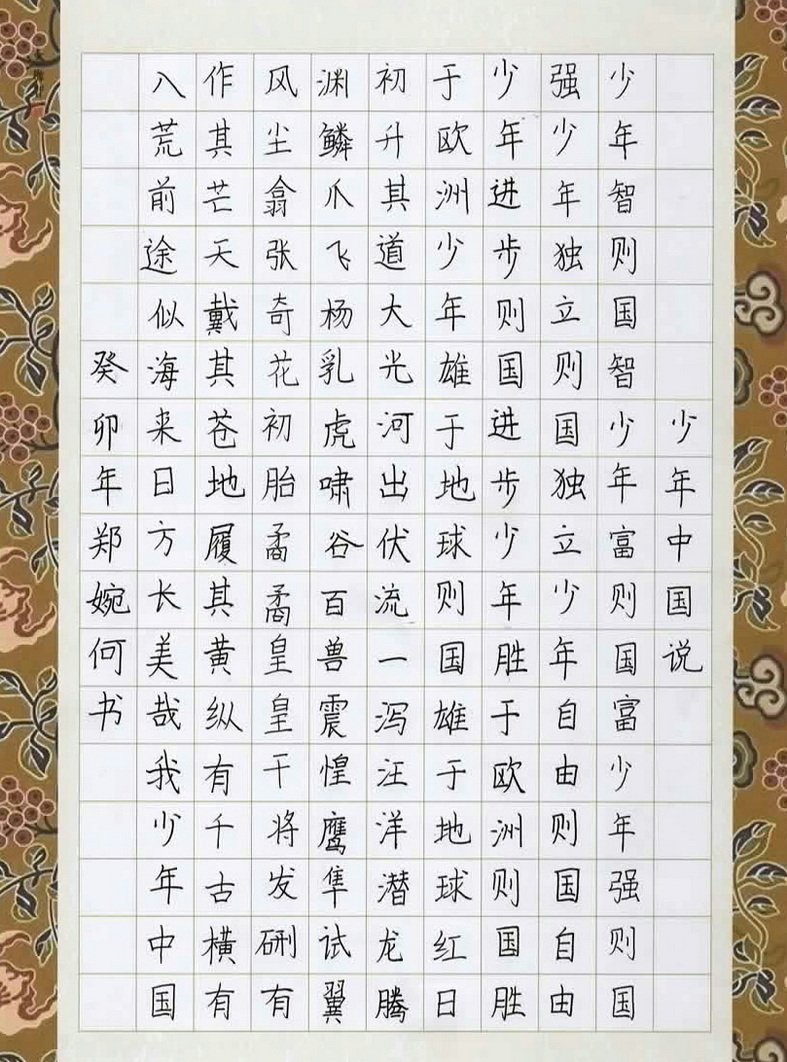 少年中国说
少年智则国智少年富则国富少年强则国
强少年独立则国独立少年自由则国自由
少年进步则国进步少年胜于欧洲则国胜
于欧洲少年雄于地球则国雄于地球红日
初升其道大光河出伏流一泻汪洋潜龙腾
渊鳞爪飞杨乳虎啸谷百兽震惶鹰隼试翼
风尘翕张奇花初胎矞矞皇皇干将发硎有
作其芒天戴其苍地履其黄纵有千古横有
八荒前途似海来日方长美哉我少年中国
癸卯年郑婉何书